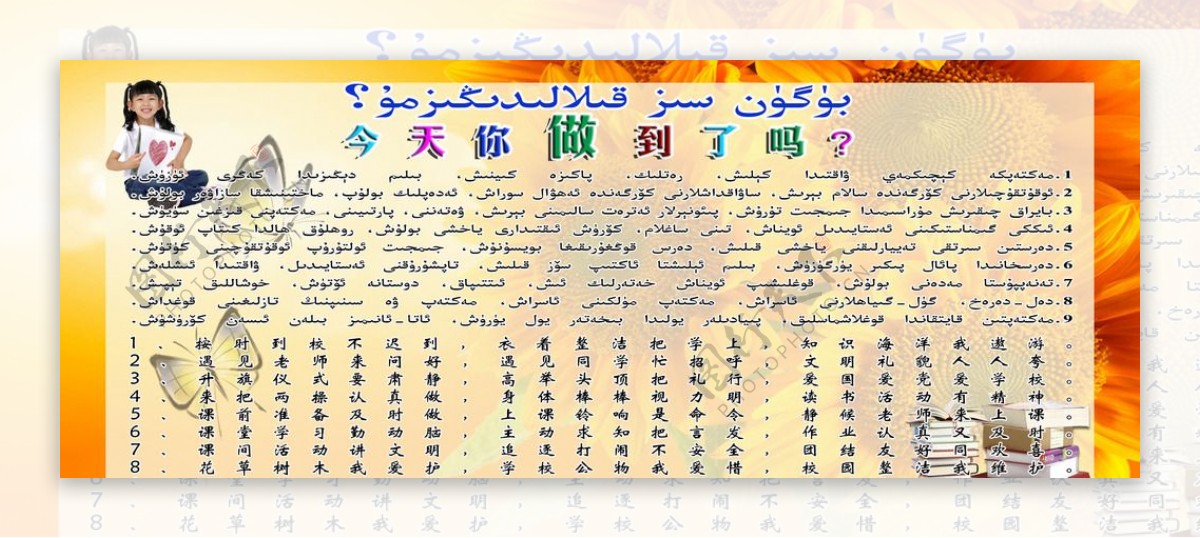 بۈگۈن سىز قىلالىدىڭىزمۇ؟
今天你做到了吗?
1.مەكتەپكە كېچىكمەي ۋاقتىدا كېلىش، رەتلىك، پاكىزە كىيىنىش، بىلىم دېڭىزىدا كەڭرى ئۈزۈش.
2.ئوقۇتقۇچىلارنى كۆرگەندە سالام بېرىش، ساۋاقداشلارنى كۆرگەندە ئەھۋال سوراش، ئەدەپلىك بولۇپ، ماختىنىشقا سازاۋەر بولۇش.
3.بايراق چىقىرىش مۇراسىمىدا جىمجىت تۇرۇش، پىئونېرلار ئەترەت سالىمىنى بېرىش، ۋەتەننى، پارتىيىنى، مەكتەپنى قىزغىن سۆيۈش.
4.ئىككى گىمناستىكىنى ئەستايىدىل ئويناش، تېنى ساغلام، كۆرۈش ئىقتىدارى ياخشى بولۇش، روھلۇق ھالدا كىتاب ئوقۇش.
5.دەرستىن سىرتقى تەييارلىقنى ياخشى قىلىش، دەرس قوڭغۇرىقىغا بويسۇنۇش، جىمجىت ئولتۇرۇپ ئوقۇتقۇچىنى كۈتۈش.
6.دەرسخانىدا پائال پىكىر يۈرگۈزۈش، بىلىم ئېلىشتا ئاكتىپ سۆز قىلىش، تاپشۇرۇقنى ئەستايىدىل، ۋاقتىدا ئىشلەش.
7.تەنەپپۇستا مەدەنىي بولۇش، قوغلىشىپ ئويناش خەتەرلىك ئىش، ئىتتىپاق، دوستانە ئۆتۈش، خوشاللىق تېپىش.
8.دەل-دەرەخ، گۈل-گىياھلارنى ئاسراش، مەكتەپ مۈلكىنى ئاسراش، مەكتەپ ۋە سىنىپنىڭ تازىلىقىنى قوغداش.
9.مەكتەپتىن قايتقاندا قوغلاشماسلىق، پىيادىلەر يولىدا بىخەتەر يول يۈرۈش، ئاتا-ئانىمىز بىلەن ئىسەن كۆرۈشۈش.
1、按时到校不迟到,衣着整洁把学上,知识海洋我遨游。
2、遇见老师来问好,遇见同学忙招呼,文明礼貌人人夸。
3、升旗仪式要肃静,高举头顶把礼行,爱国爱党爱学校。
4、来把两操认真做,身体棒棒视力明,读书活动有精神。
5、课前准备及时做,上课铃响是命令,静候老师来上课。
6、课堂学习勤动脑,主动求知把言发,作业认真又及时。
7、课间活动讲文明,追逐打闹不安全,团结友好同欢喜。
8、花草树木我爱护,学校公物我爱惜,校园整洁我维护。